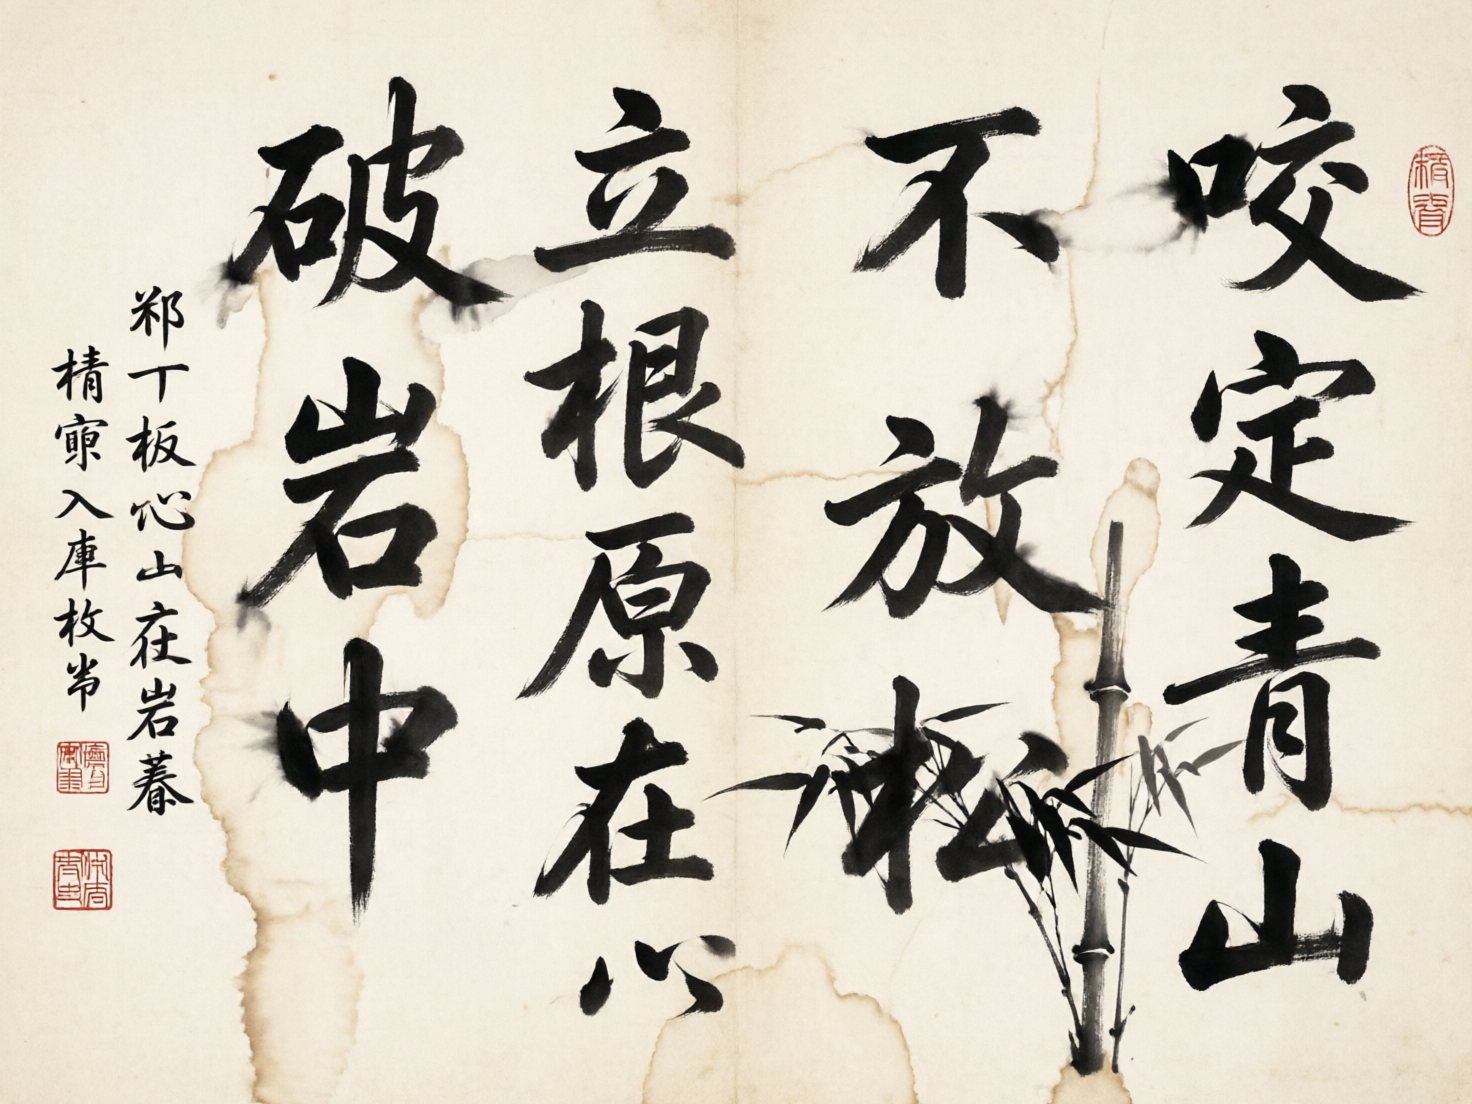 咬定青山
不放松
立根原在心
破岩中
丁板心山在岩
入庫枚